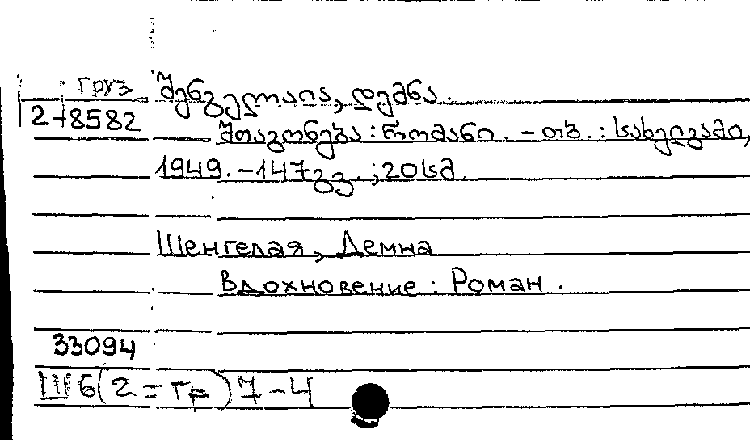 груз შენგელაია, დემნა.
2-8582
შთაგონება : რომანი. - თბ. : სახელგამი,
1949. - 147 გვ. ; 20 სმ.
Шенгелая, Демна
Вдохновение : Роман.
33094
Ш6(2=Гр)7-4